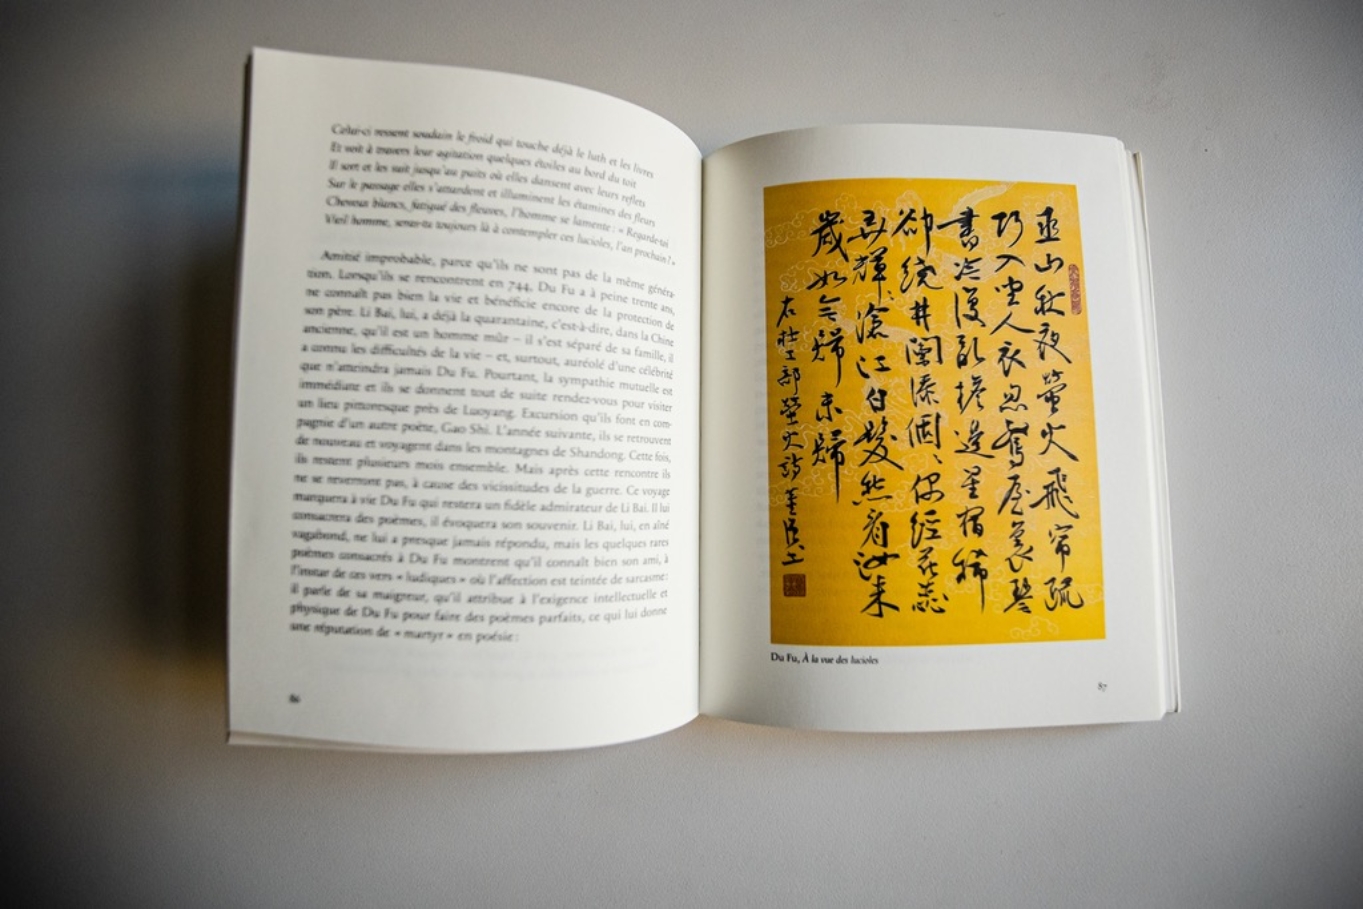 Celui-ci ressent soudain le froid qui touche déjà le luth et les livres
Et voit à travers leur agitation quelques étoiles au bord du toit
Il sort et les suit jusqu'au puits où elles dansent avec leurs reflets
Sur le passage elles s'attardent et illuminent les étamines des fleurs
Cheveux blancs, fatigué des fleuves, l'homme se lamente : « Regarde-toi
Vieil homme, seras-tu toujours là à contempler ces lucioles, l'an prochain ? »
Amitié improbable, parce qu'ils ne sont pas de la même généra-
tion. Lorsqu'ils se rencontrent en 744, Du Fu a à peine trente ans,
ne connaît pas bien la vie et bénéficie encore de la protection de
son père. Li Bai, lui, a déjà la quarantaine, c'est-à-dire, dans la Chine
ancienne, qu'il est un homme mûr – il s'est séparé de sa famille, il
a connu les difficultés de la vie – et, surtout, auréolé d'une célébrité
que n'atteindra jamais Du Fu. Pourtant, la sympathie mutuelle est
immédiate et ils se donnent tout de suite rendez-vous pour visiter
un lieu pittoresque près de Luoyang. Excursion qu'ils font en com-
pagnie d'un autre poète, Gao Shi. L'année suivante, ils se retrouvent
de nouveau et voyagent dans les montagnes de Shandong. Cette fois,
ils restent plusieurs mois ensemble. Mais après cette rencontre ils
ne se reverront pas, à cause des vicissitudes de la guerre. Ce voyage
marquera à vie Du Fu qui restera un fidèle admirateur de Li Bai. Il lui
consacrera des poèmes, il évoquera son souvenir. Li Bai, lui, en aîné
vagabond, ne lui a presque jamais répondu, mais les quelques rares
poèmes consacrés à Du Fu montrent qu'il connaît bien son ami, à
l'instar de ces vers « ludiques » où l'affection est teintée de sarcasme :
il parle de sa maigreur, qu'il attribue à l'exigence intellectuelle et
physique de Du Fu pour faire des poèmes parfaits, ce qui lui donne
une réputation de « martyr » en poésie :
86
巫山秋夜螢火飛帘疏
巧入坐人衣忽驚屋裏琴
書冷復亂檐邊星宿稀
卻繞井闌添個、偶經花蕊
弄輝、滄江白髮愁看汝來
歲如今歸未歸
右杜工部螢火詩
Du Fu, À la vue des lucioles
87